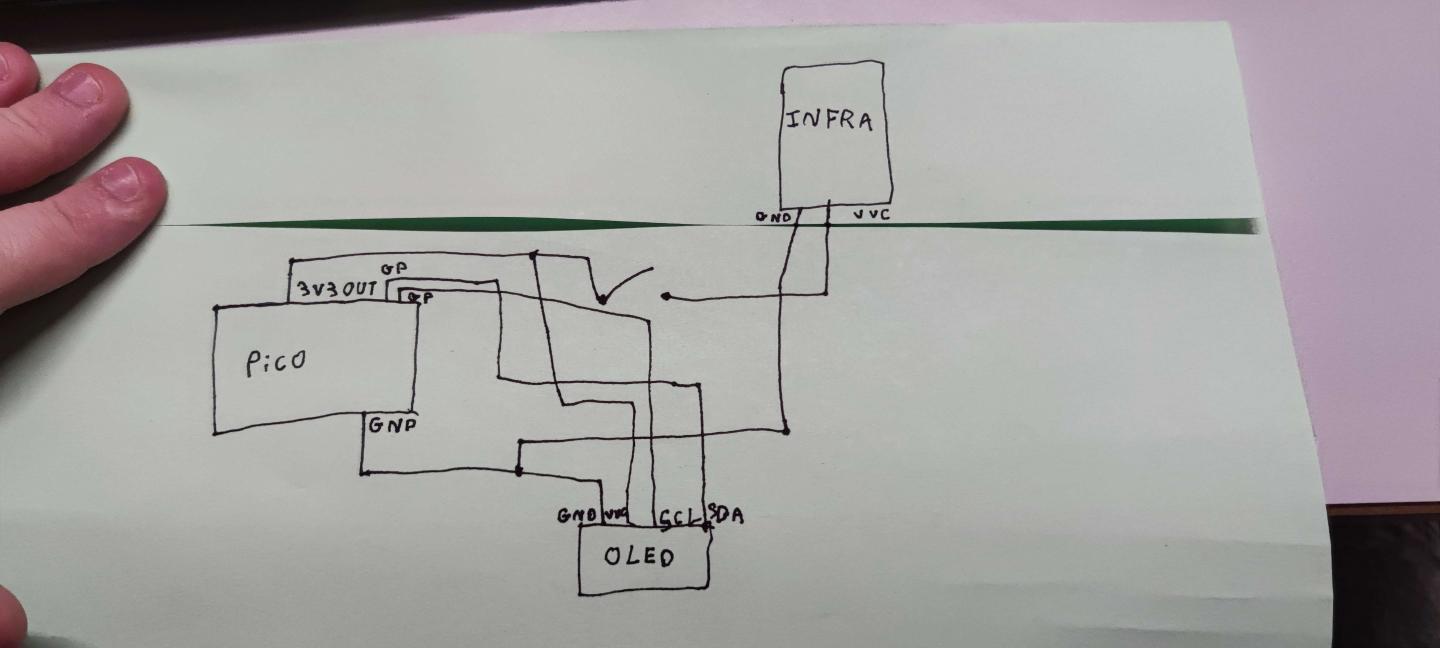 INFRA
GND VVC
GP
3V3OUT GP
PiCO
GNP
GND VVC SCL SDA
OLED